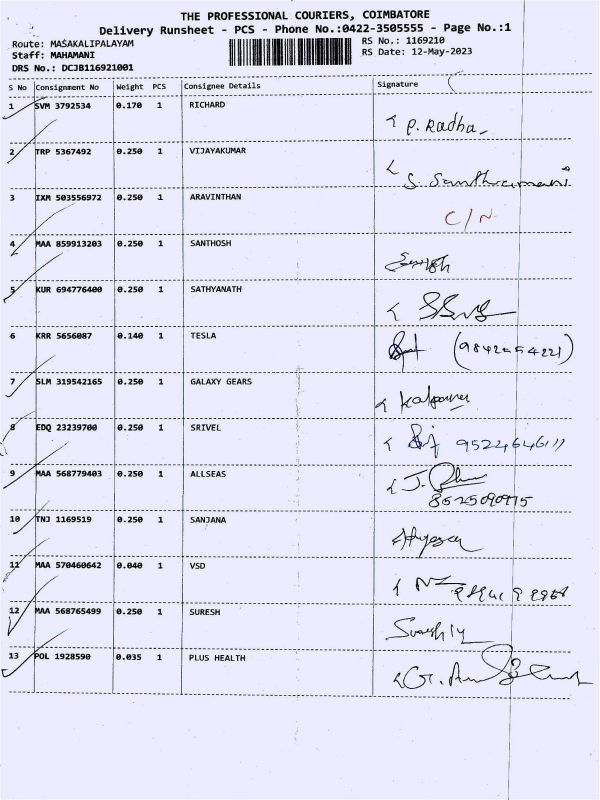 THE PROFESSIONAL COURIERS, COIMBATORE
Delivery Runsheet - PCS - Phone No.:0422-3505555 - Page No.:1
Route: MASAKALIPALAYAM
Staff: MAHAMANI
DRS No.: DCJB116921001
RS No.: 1169210
RS Date: 12-May-2023
S No Consignment No Weight PCS Consignee Details Signature
1 SVM 3792534 0.170 1 RICHARD
P. Radha
2 TRP 5367492 0.250 1 VIJAYAKUMAR
3 IXM 503556972 0.250 1 ARAVINTHAN
C/N
4 MAA 859913203 0.250 1 SANTHOSH
5 KUR 694776400 0.250 1 SATHYANATH
6 KRR 5656087 0.140 1 TESLA
7 SLM 319542165 0.250 1 GALAXY GEARS
8 EDQ 23239700 0.250 1 SRIVEL
9 MAA 568779403 0.250 1 ALLSEAS
10 TNJ 1169519 0.250 1 SANJANA
11 MAA 570460642 0.040 1 VSD
12 MAA 568765499 0.250 1 SURESH
13 POL 1928590 0.035 1 PLUS HEALTH